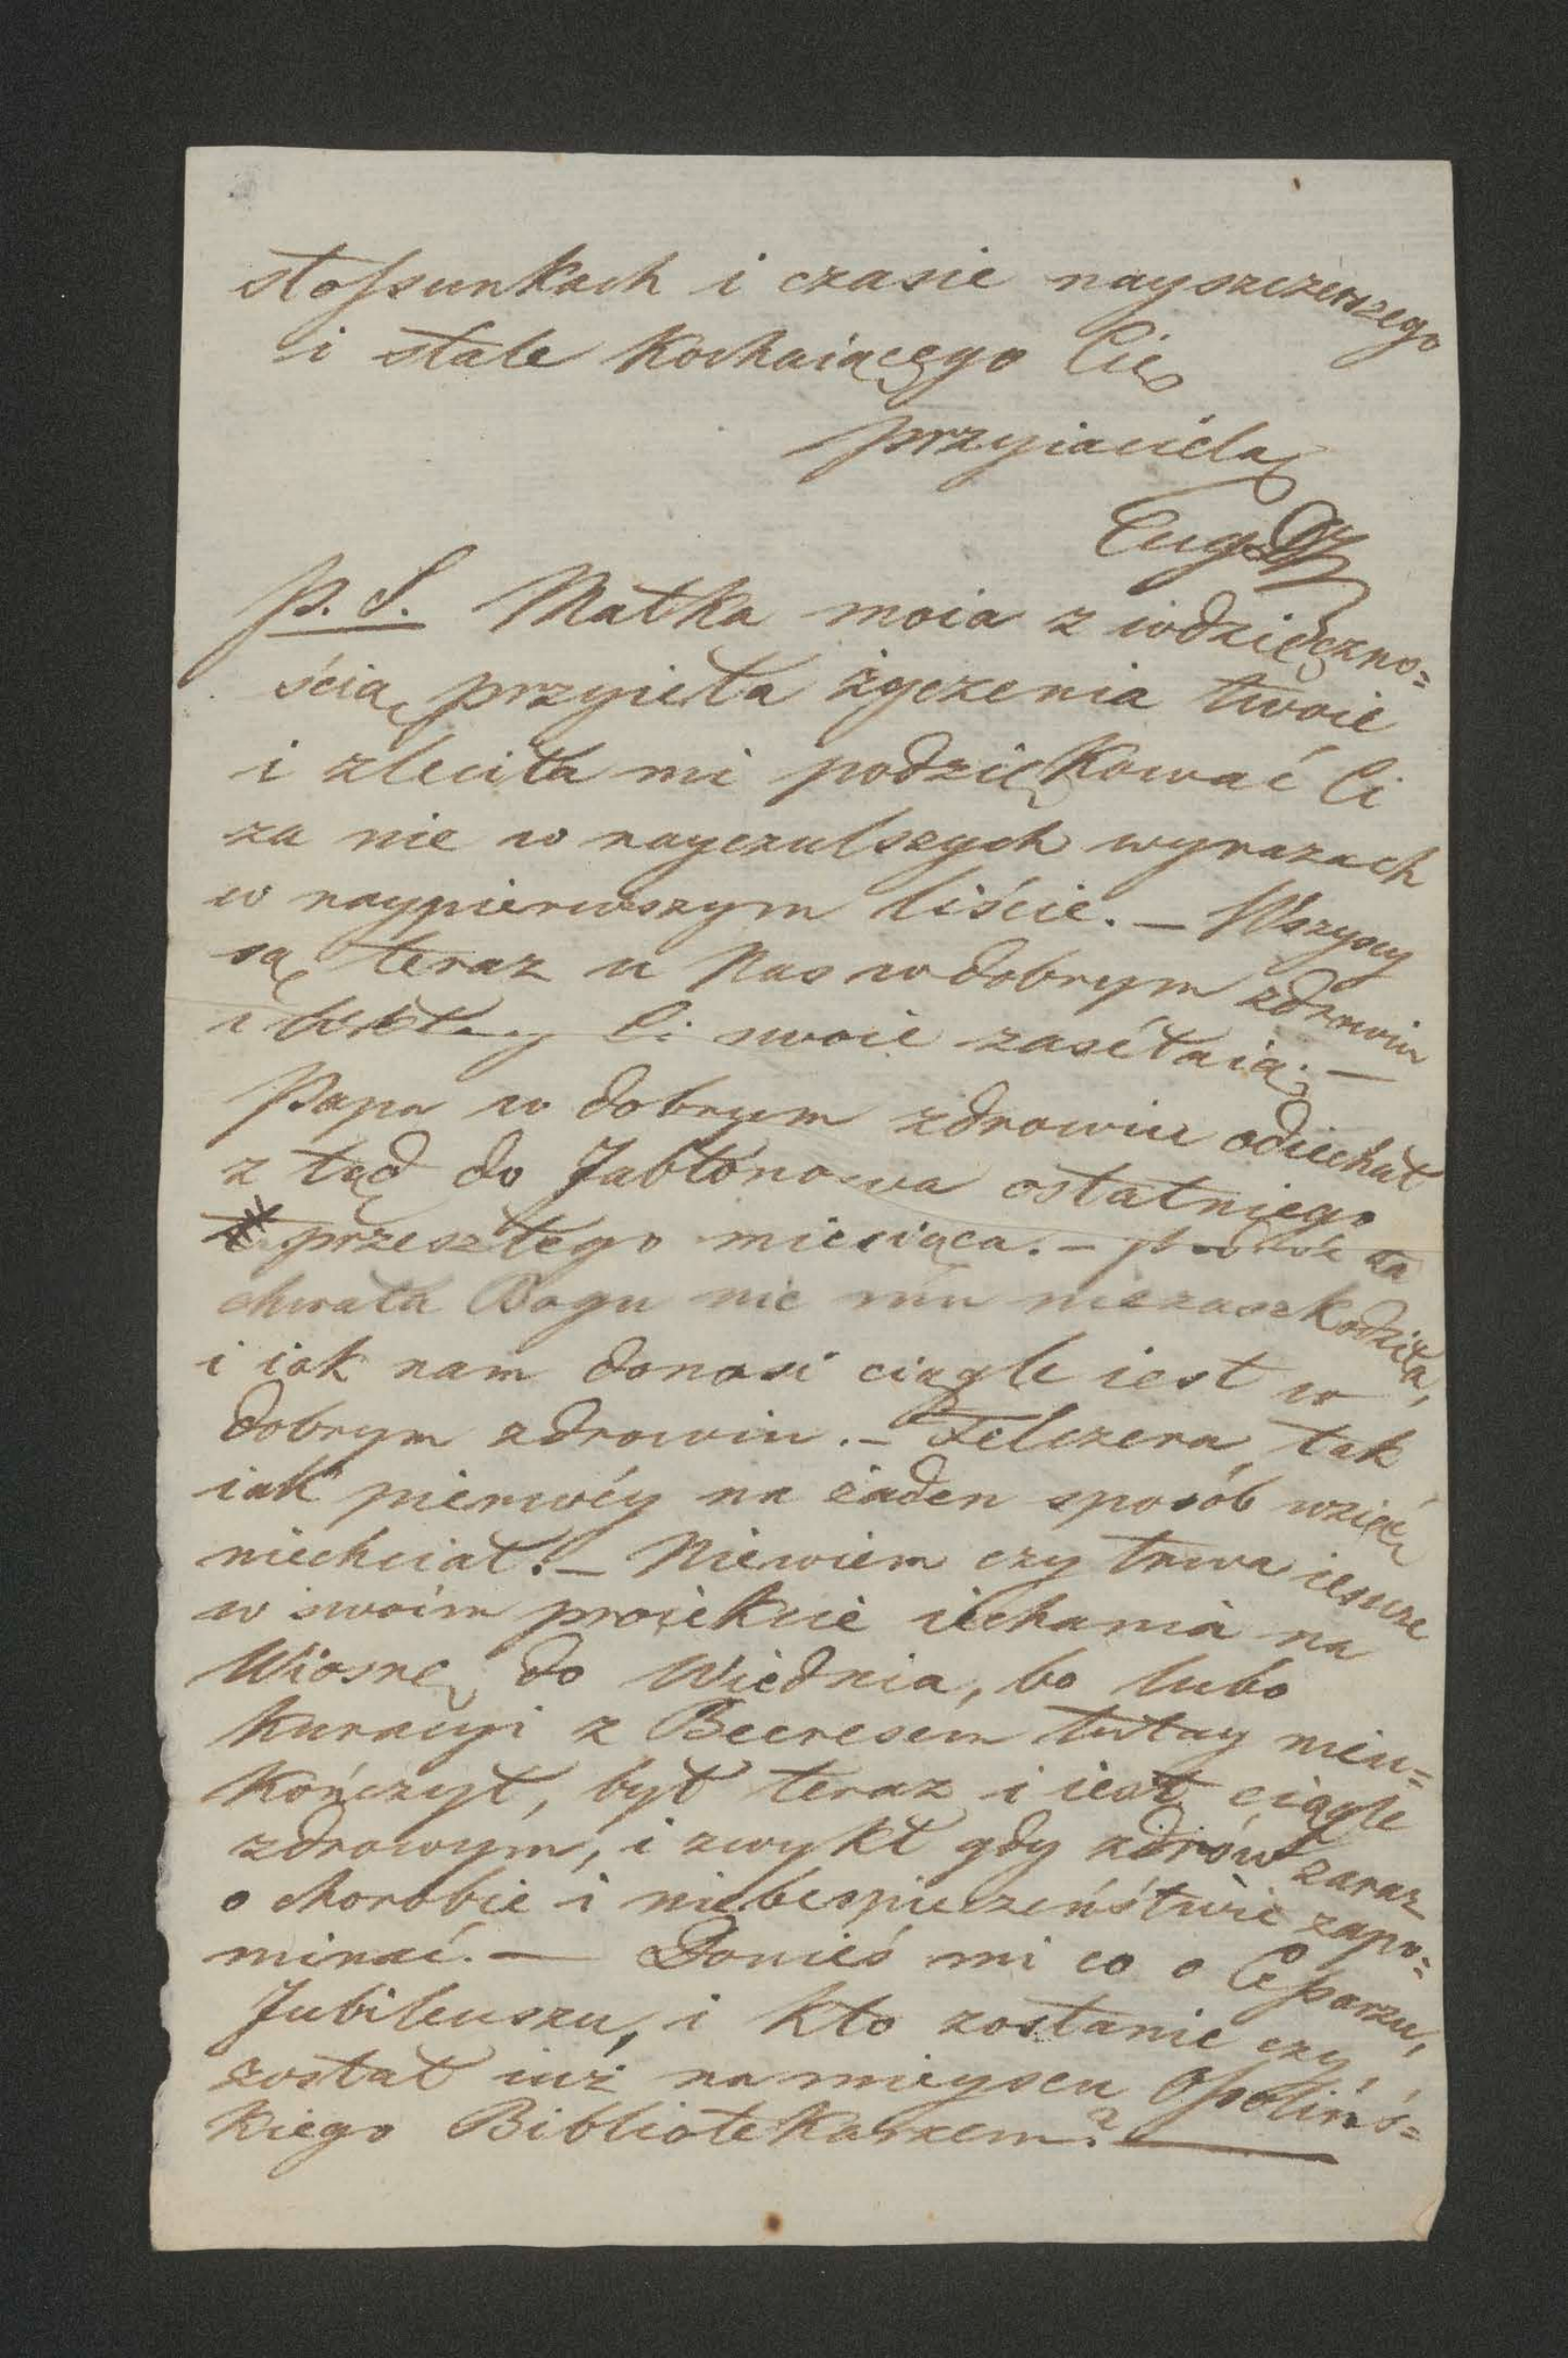 stossunkach i czasie nayszczerszego
i stale kochaiącego Cię
przyiaciela
Eug.
P. S. Matka moia z wdzięczno=
ścią przyieła życzenia twoie
i zleciła mi podziękować Ci
za nie w nayczulszych wyrazach
w naypierwszym liście. – Wszyscy
są teraz u Nas w dobrym zdrowiu
i Ci swoie zasétaią. –
Papa w dobrym zdrowiu odiechał
z tąd do Jabłonowa ostatniego
przeszłego miesiąca. – podróż ta
chwała Bogu nic mu niezaszkodziła,
i iak nam donosi ciągle iest w
dobrym zdrowiu. – Felczera tak
iak pierwéy na żaden sposób wziąć
niechciał. – Niewiem czy trwa ieszcze
w swoim proiekcie iechania na
Wiosnę do Wiednia, bo lubo
Kuracyi z Beeresem tutay nieu=
kończył, był teraz i iest ciągle
zdrowym, i zwykł gdy zdrów zaraz
o chorobie i niebespieczeństwie zapo=
minać. – Donieś mi co o Cessarzu,
Jubileuszu, i kto zostanie czy
został iuż na mieyscu Ossolińs=
kiego Bibliotekarzem?